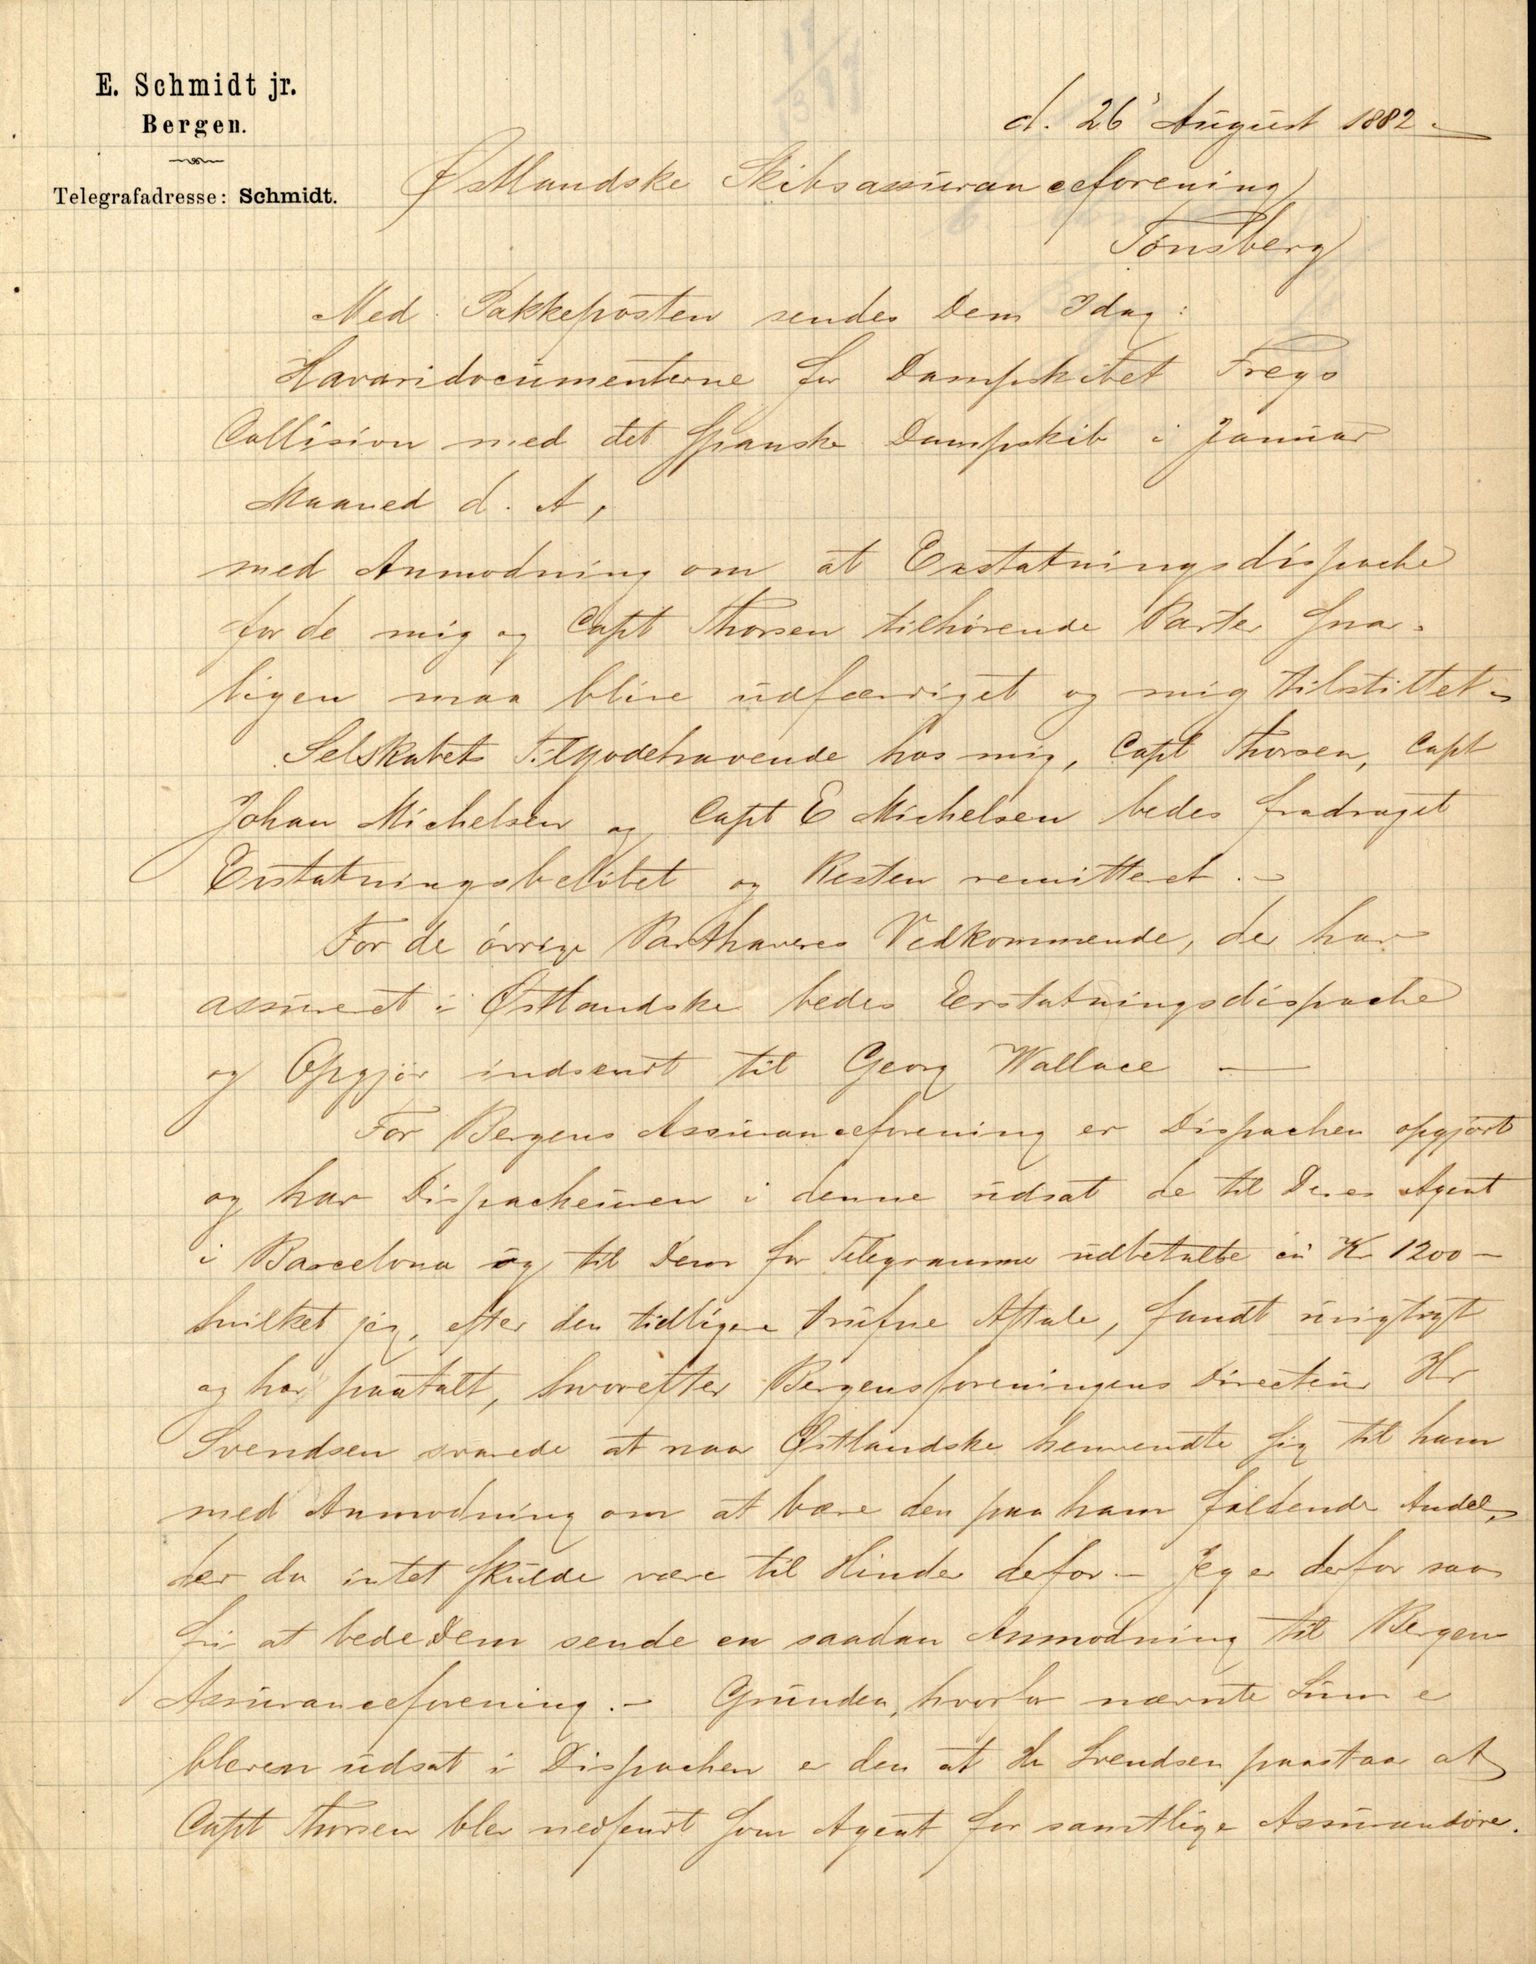 E. Schmidt jr.
Bergen.
Telegrafadresse: Schmidt.
d. 26' August 1882.
Østlandske Skibsassuranceforening
Tønsberg
Med Pakkeposten sendes Dem Idag:
Havaridocumenterne for Dampskibet Freys
Collision med det spanske Dampskib i Januar
Maaned d. A,
med Anmodning om at Erstatningsdispache
for de mig og Capt Thorsen tilhørende Parter sna-
ligen maa blive udfærdiget og mig tilstillet.
Selskabets Tilgodehavende hos mig, Capt Thorsen, Capt
Johan Michelsen og Capt E Michelsen bedes fradraget
Erstatningsbeløbet og Resten remitteret. -
For de øvrige Parthaveres Vedkommende, der har
assureret i Østlandske bedes Erstatningsdispache
og Opgjør indsendt til Georg Wallace —
For Bergens Assuranceforening er Dispachen opgjørt
og har Dispacheuren i denne udsat de til Deres Agent
i Barcelona og til Dem for Telegramme udbetalte Kr 1200 -
hvilket jeg, efter den tidligere trufne Aftale, fandt urigtigt
og har paatalt, hvorefter Bergensforeningens Directeur Hr
Svendsen svarede at naar Østlandske henvendte sig til ham
med Anmodning om at bære den paa ham faldende Andel,
der da intet skulde være til Hinder derfor. - Jeg er derfor saa
fri at bede Dem sende en saadan Anmodning til Bergens
Assuranceforening. - Grunden, hvorfor nævnte Sum er
bleven udsat i Dispachen er den at Hr Svendsen paastaar at
Capt Thorsen blev nedsendt som Agent for samtlige Assurandører.